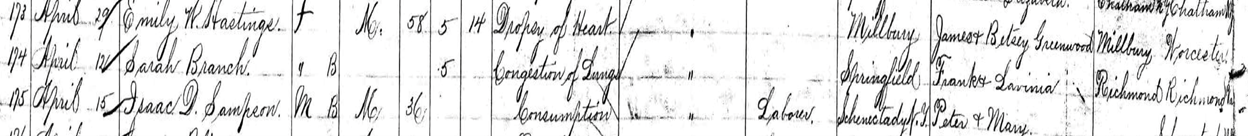 173 April 29 Emily W. Hastings. F M. 58 5 14 Dropsy of Heart. " Millbury James & Betsey Greenwood Millbury Worcester.
174 April 12 Sarah Branch. " B 5 Congestion of Lungs " Springfield Frank & Lavinia Richmond Richmond
175 April 15 Isaac D. Sampson. M B M 36 Consumption " Laborer. Schenectady N.Y. Peter & Mary.